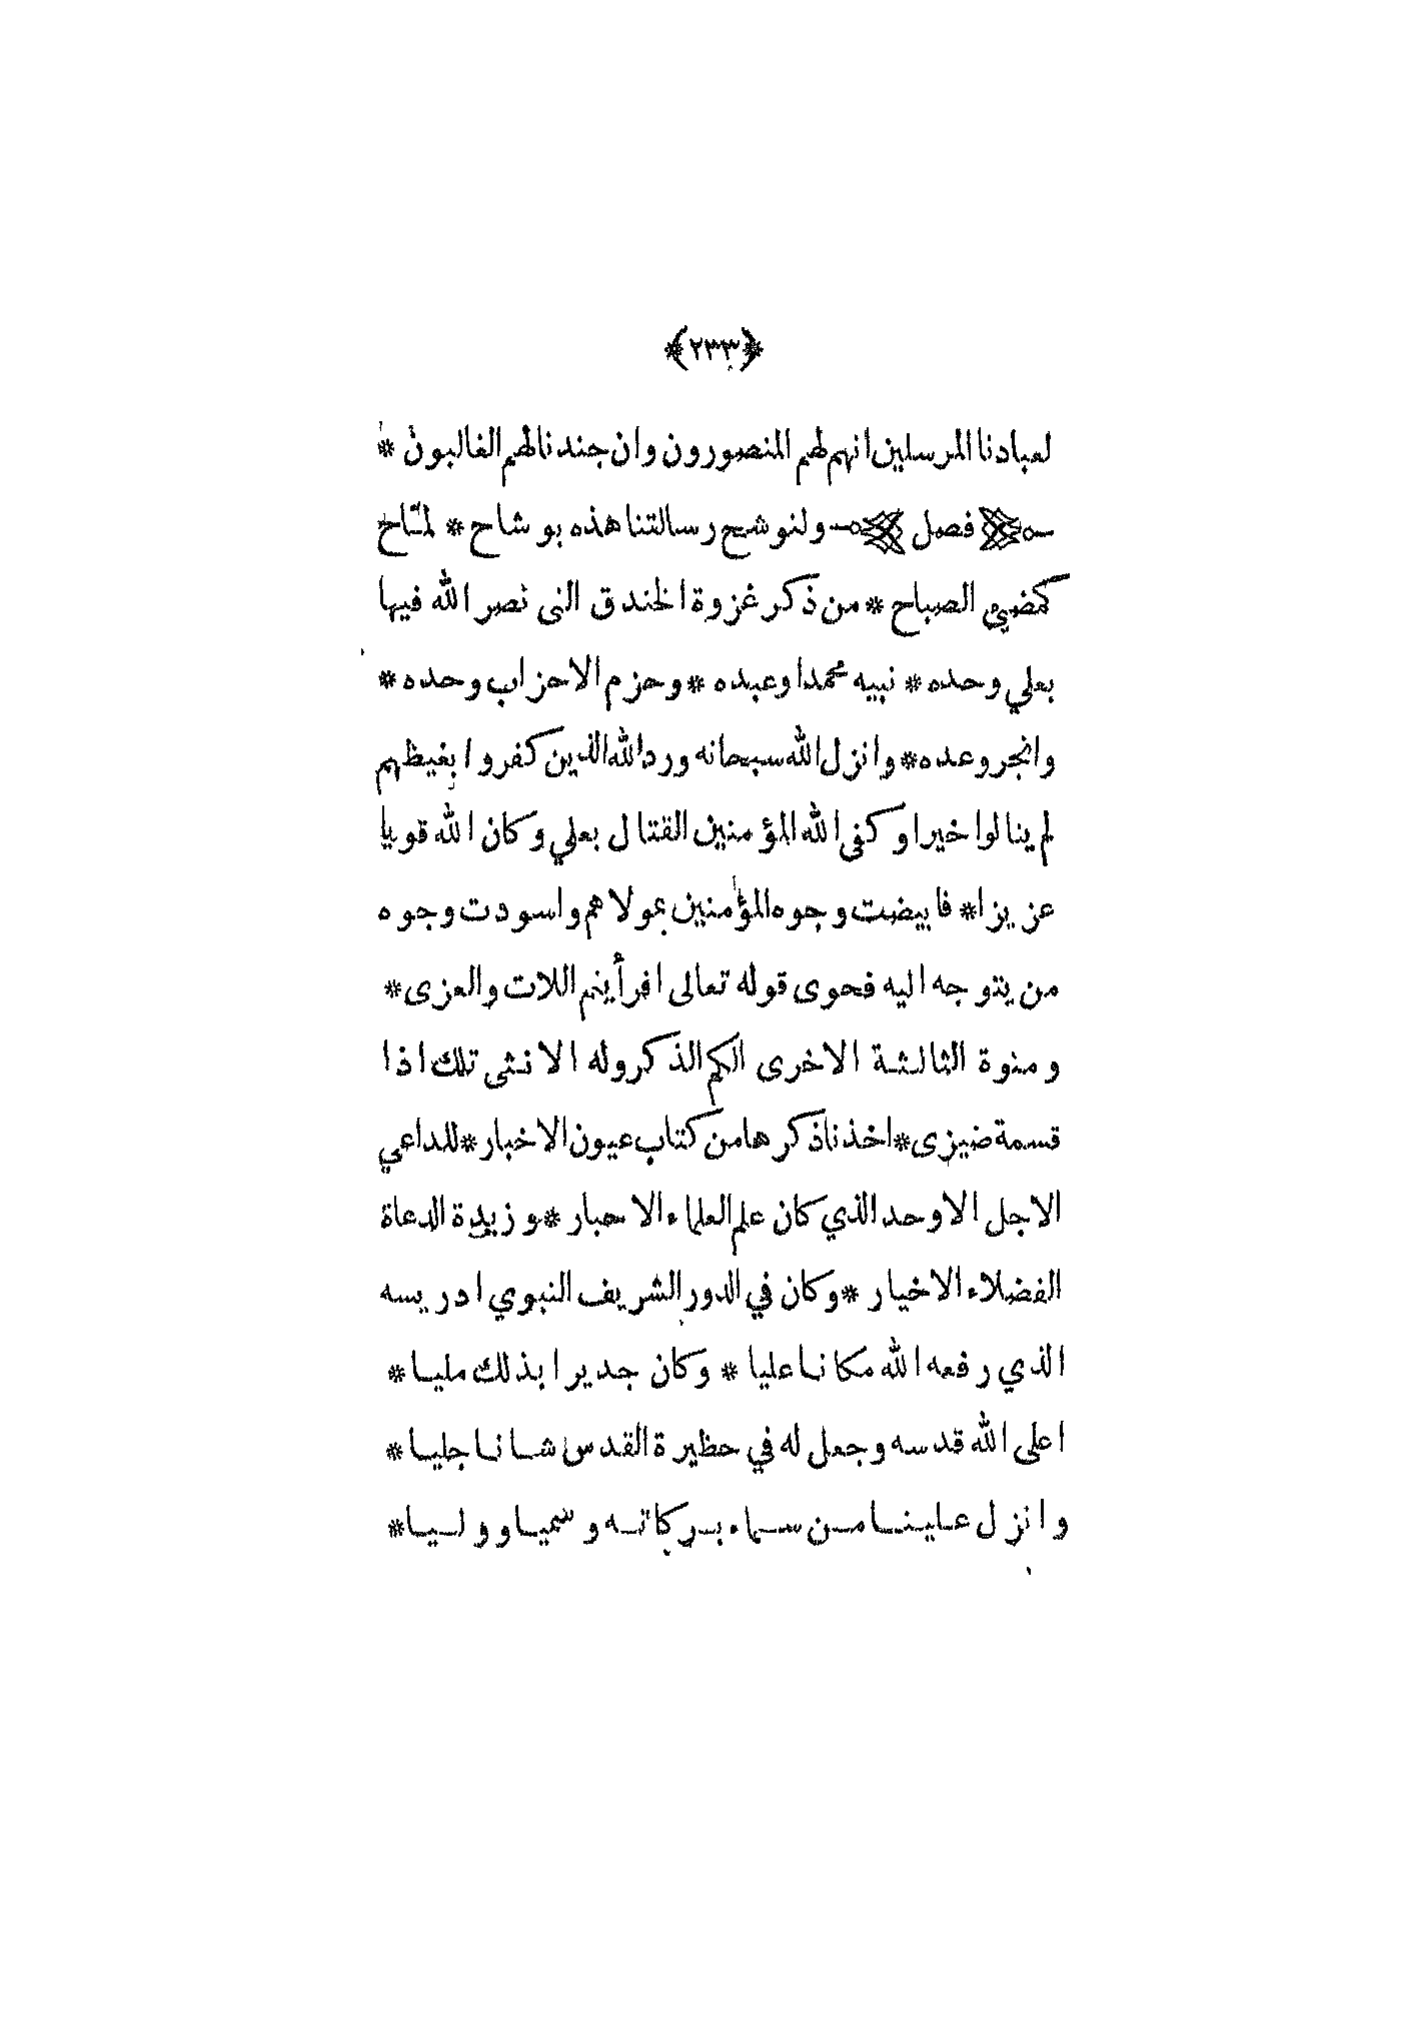 ﴿٢٣٣﴾
لعبادنا المرسلين انهم لهم المنصورون وان جندنا لهم الغالبون *
فصل ولنوشح رسالتنا هذه بوشاح * لمّاح
كمضيئ الصباح * من ذكر غزوة الخندق التى نصر الله فيها
بعلي وحده * نبيه محمدا وعبده * وحزم الاحزاب وحده *
وانجر وعده * وانزل الله سبحانه ورد الله الذين كفروا بغيظهم
لم ينالوا خيرا وكفى الله المؤمنين القتال بعلي وكان الله قويا
عزيزا * فابيضت وجوه المؤمنين بمولاهم واسودت وجوه
من يتوجه اليه فحوى قوله تعالى افرأيتم اللات والعزى *
ومنوة الثالثة الاخرى الكم الذكر وله الانثى تلك اذا
قسمة ضيزى * اخذنا ذكرها من كتاب عيون الاخبار * للداعي
الاجل الاوحد الذي كان علم العلماء الاحبار * وزبدة الدعاة
الفضلاء الاخيار * وكان في الدور الشريف النبوي ادريسه
الذي رفعه الله مكانا عليا * وكان جديرا بذلك مليا *
اعلى الله قدسه وجعل له في حظيرة القدس شانا جليا *
وانزل علينا من سماء بركاته وسميا ووليا *